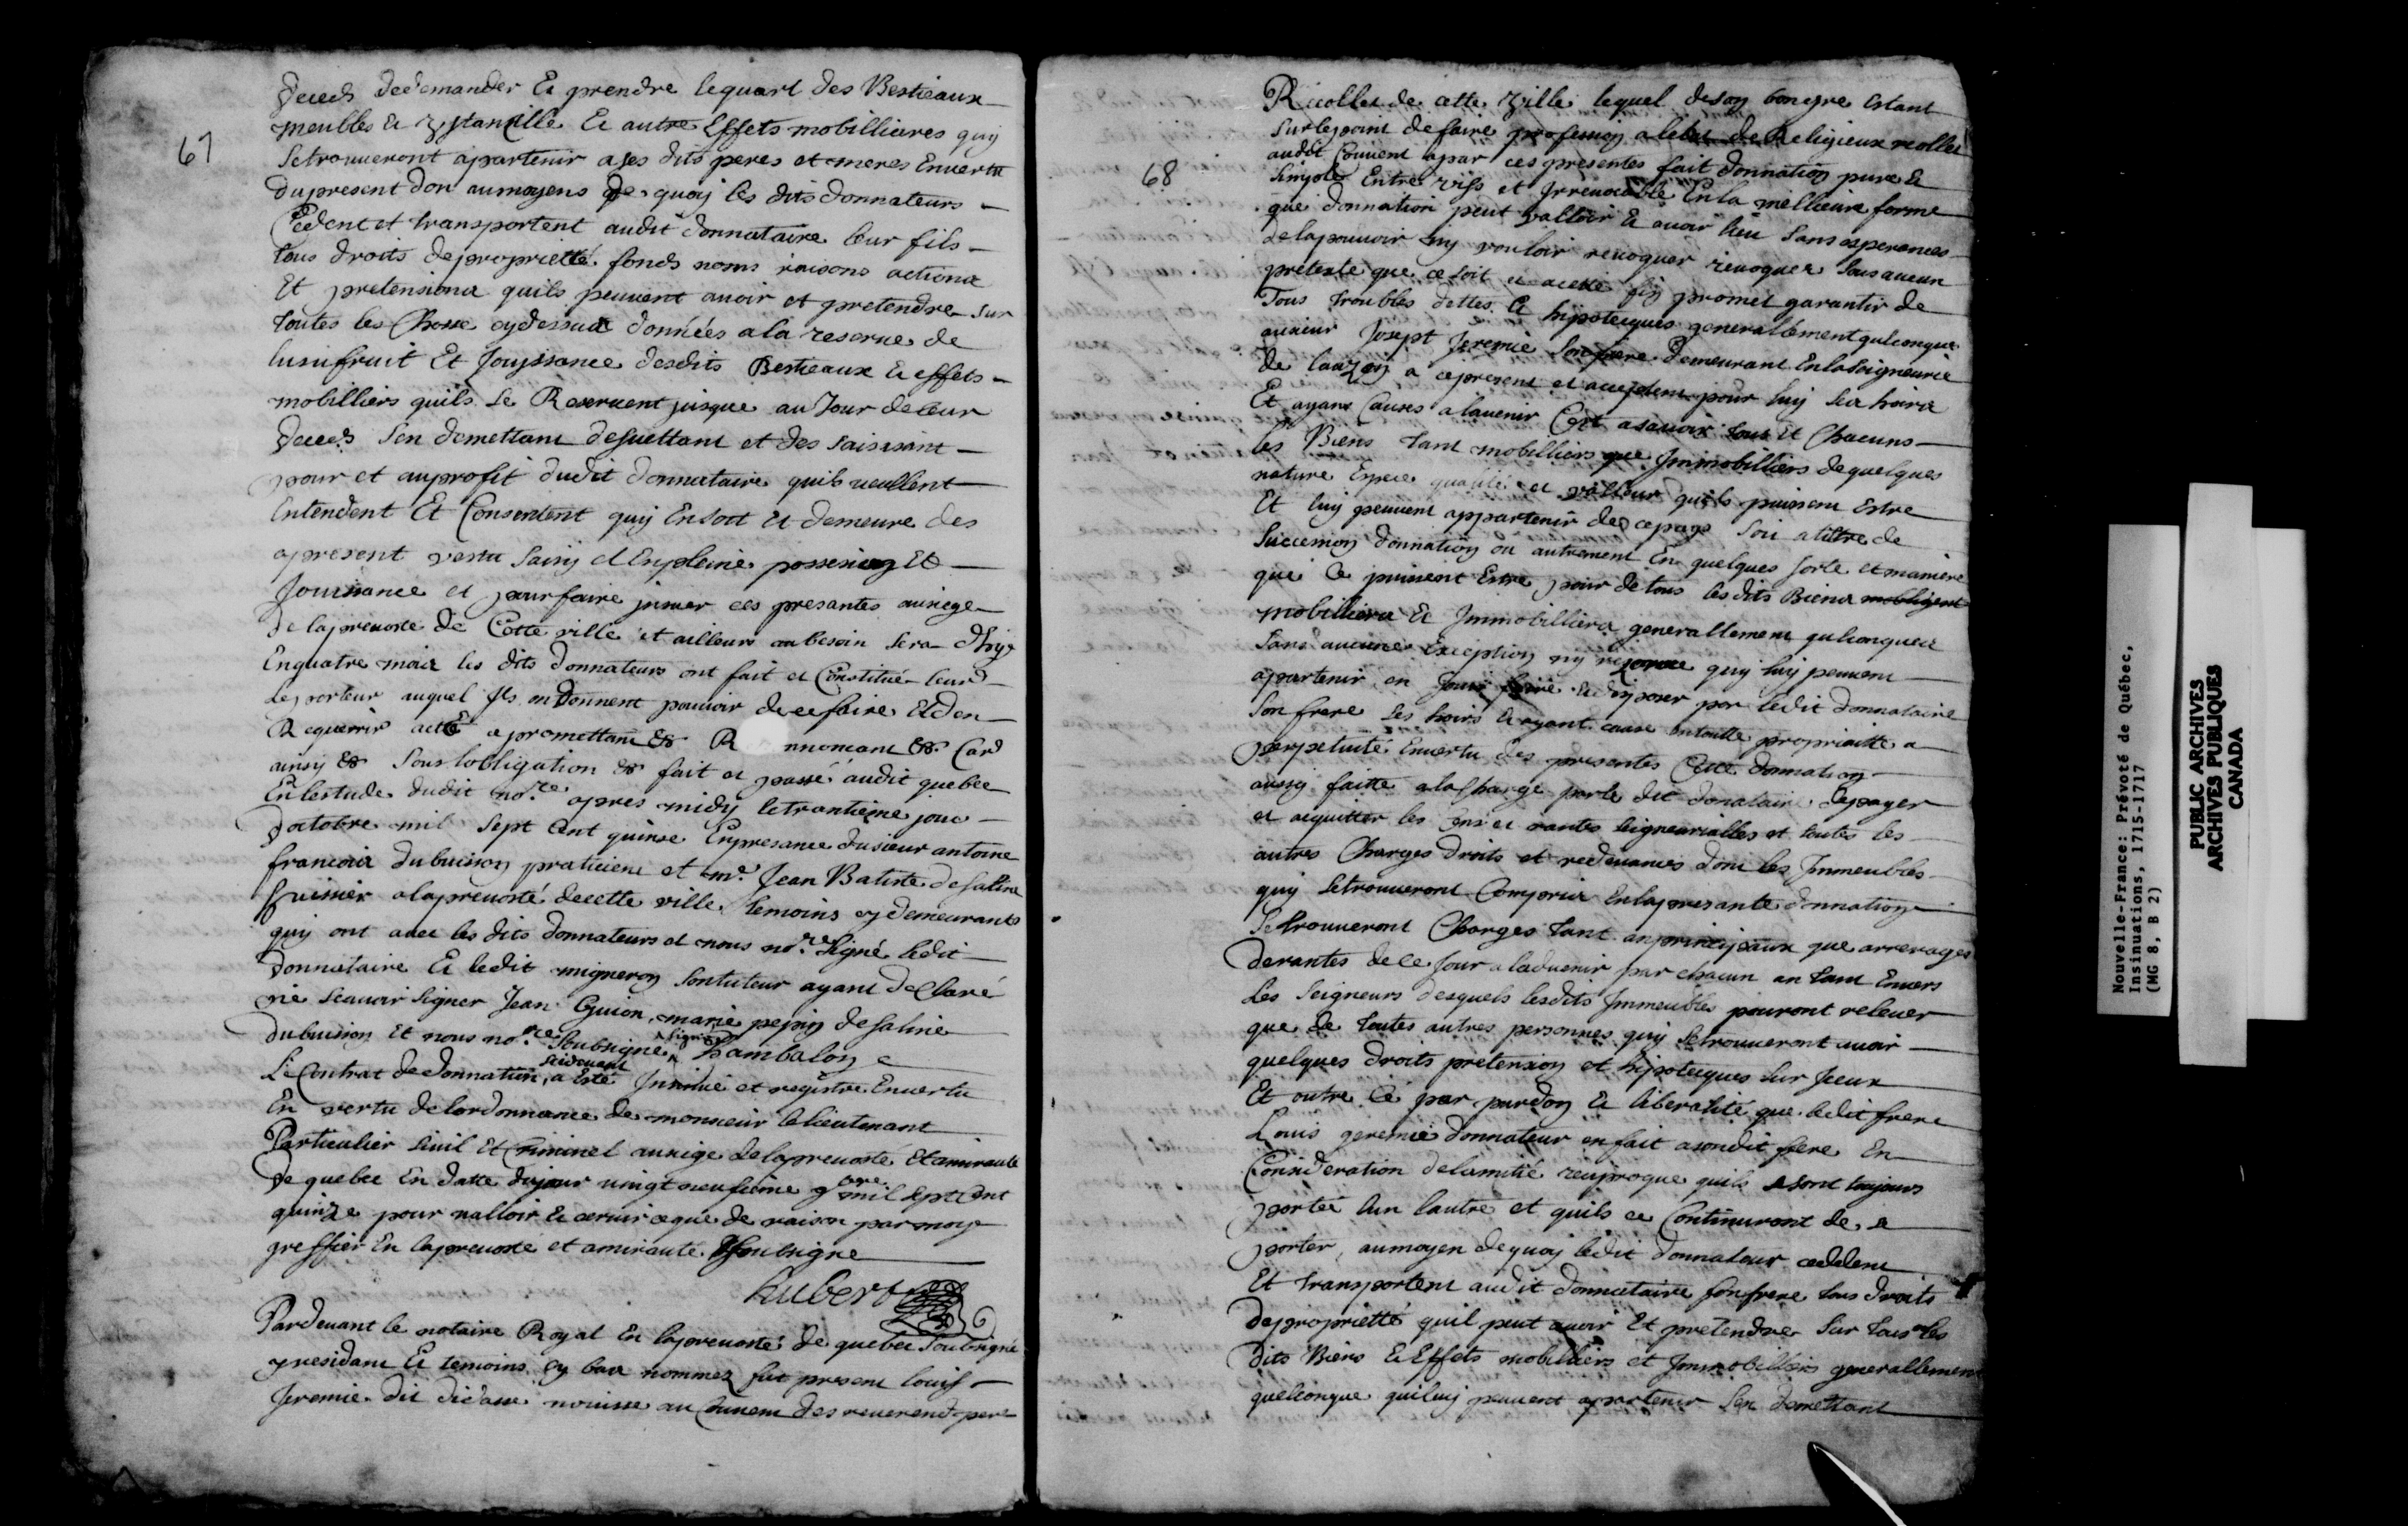 67
deceds dedemander Et prendre lequart des Bestieaux
meubles Et Vstancille Et autre Effets mobillieres quy
Setrouueront apartenir ases dits peres et meres Enuertu
dupresent don aumoyens de quoy les dits donnateurs
Cedent et transportent audit donnataire leur fils
tous droits depropriette fonds noms raisons actions
Et pretensions quils peuuent auoir et pretendre Sur
toutes les Chose cydessus données ala reserue de
lusufruit Et Jouyssance desdits Bestieaux Et effets
mobilliers quils Se Reseruent jusque au Jour deleur
deceds Sen demettant desuettant et des saisisant
pour et auproffit dudit donnataire quils ueullent
Entendent Et Consentent quy Ensoit Et demeure des
apresent vestu Saisy et Enpleine possesion Et
Jouissance et pour faire insinuer ces presantes ausiege
de laprevoste de Cette ville et ailleurs au besoin Sera
Enquatre mois les dits donnateurs ont fait et Constitué leur
leporteur auquel Ils en donnent pouuoir de cefaire Et den
Requerir acte promettant &a R nnoncant &a Card
ainsy &a Sous lobligation &a fait et passé audit quebec
En lestude dudit no.re apres midy letrantieme jour
doctobre mil Sept Cent quinse Enpresance dusieur antoine
francois dubuisson praticiens et me. Jean Batiste desaline
huissier alapreuosté decette ville temoins cy demeurants
quy ont auec les dits donnateurs et nous no.re Signé ledit
donnataire Et ledit migneron Sontuteur ayant declaré
ne Scauoir Signer Jean Guion, marie pepin desaline
dubuisson Et nous no.re Soubsigne Signé Chambalon
Le Contrat dedonnation, seidenant a Esté Insinué et registre Enuertu
En vertu delordonnance de monsieur lelieutenant
Particulier Siuil Et Criminel ausiege delapreuosté Et amirauté
de quebec En datte dujour vingt neufieme 9bre mil Sept Cent
quinze pour valloir Et ceruir ceque de raison par moy
greffier En lapreuosté et amirauté Soubsigne
hubert
Pardeuant le notaire Royal En lapreuosté de quebec Soubsigné
presidant Et temoins cy bas nommez fut present louis
Jeremie dit didasse nouisse au Couuent des reuerend pere
68
Récollet de cette Ville lequel deson bongre Estant
Surlepoint defaire profession aletat de Religieux recollet
audit Couuent apar ces presentes fait donnation pure Et
Simple Entre vifs et Irreuocable En la mellieure forme
que donnation peut valloir Et auoir lieu Sans esperences
delapouuoir ny vouloir reuoquer reuoquer Sous aucun
pretexte que ce soit et acette fin promet garantir de
Tous troubles dettes Et hipotecques generallement qulconque
ausieur Josept Jeremie Son frere demeurant Enlaseigneurie
de lauzon a cepresent et acceptant pour luy Ses hoirs
Et ayans Causes alauenir Cest asauoir tous Et Chacuns
les Biens tant mobilliers que Immobilliers dequelques
nature Espece qualité et valleur quils puissent Estre
Et luy peuuent appartenir de cepays Soit atiltre de
Succession donnation ou autrement En quelques Sorte et maniere
que Ce puissent Estre pour de tous les dits Biens mobligent
mobilliers Et Immobilliers generallement qulconques
Sans aucune Exception ny reserue quy luy peuuent
apartenir en Jouir faire Et disposer par ledit donnataire
Son frere Ses hoirs Et ayant cause entoutte proprieitte a
perpetuité Enuertu des presentes Cette donnation
aussy faitte ala Charge parle dit donataire depayer
et acquitter les cens et rantes Seigneurialles et toutes les
autres Charges droits et redeuances dont les Immeubles
quy Setrouueront Compris Enlapresante donnation
Setrouueront Charges tant anprincipaux que arrerages
derantes dece Jour aladuenir par chacun an tant Enuers
Les Seigneurs desquels lesdits Immeubles pouront releuer
que de toutes autres personnes quy Setrouueront auoir
quelques droits pretension et hipotecques Sur Iceux
Et outre Ce par pardon Et liberalité que ledit frere
Louis geremie donnateur en fait asondit frere En
Consideration delamitié reciproque quils se sont toujours
portée lun lautre et quils ce Continuront de se
porter, aumoyen dequoy ledit donnateur ceddent
Et transportent audit donnataire Sonfrere tous droits
depropriette quil peut auoir Et pretendre Sur tous les
dits Biens Et Effets mobilliers et Immobilliers generallement
quelconque quiluy peuuent apartenir Sen demettant
Nouvelle-France: Prévoté de Québec,
Insinuations, 1715-1717
(MG 8, B 2)
PUBLIC ARCHIVES
ARCHIVES PUBLIQUES
CANADA